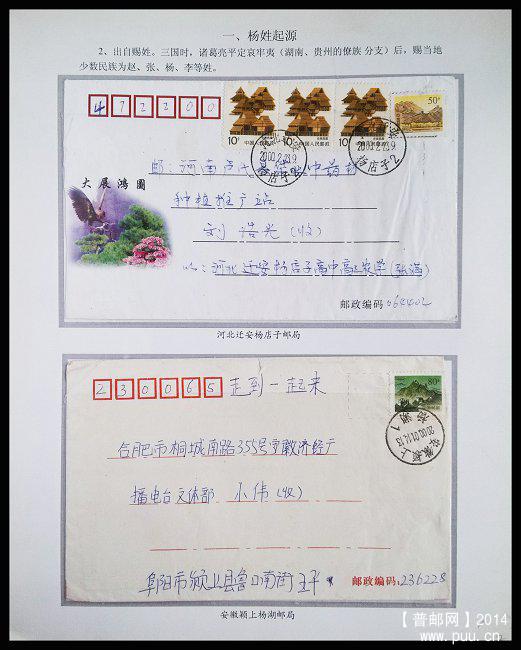 一、杨姓起源
2、出自赐姓。三国时，诸葛亮平定哀牢夷（湖南、贵州的僚族 分支）后，赐当地
少数民族为赵、张、杨、李等姓。
472200
10分 中国人民邮政
10分 中国人民邮政
10分 中国人民邮政
50分
2000.2.23.9
杨店子2
大展鸿图
邮：河南卢氏县
种植推广站
刘浩光（收）
河北迁安杨店子高中高
邮政编码：064402
河北迁安杨店子邮局
230065 走到一起来
80分
安徽颍上
2000.01.14.13
杨湖1
合肥市桐城南路355号安徽济经广
播电台文体部 小伟（收）
阜阳市颍上县鲁口南街王
邮政编码：236228
安徽颍上杨湖邮局
【普邮网】2014
www.puu.cn